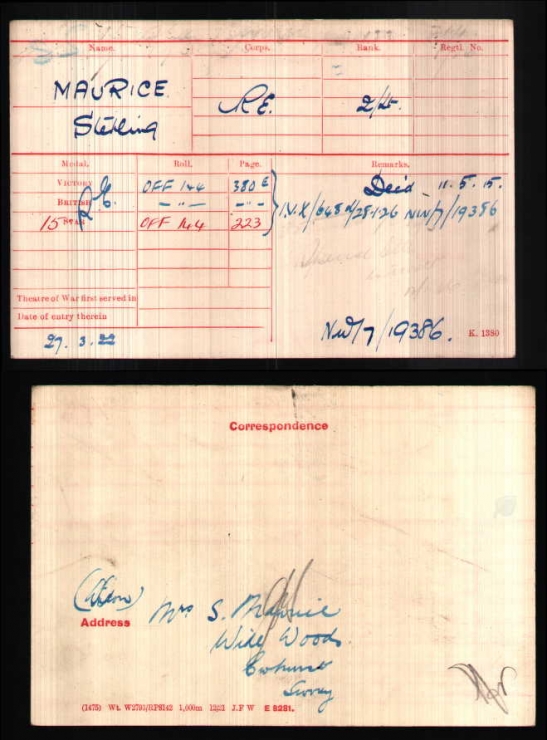 Name. Corps. Rank. Regtl. No.
MAURICE
R.E. 2/Lt.
Sterling
Medal. Roll. Page. Remarks.
VICTORY OFF 144 380 E Deid - 11.5.15.
BRITISH R.E. - " - - " - I.V.X/648d/28-126 NW/7/19386
15 STAR OFF 144 223
Theatre of War first served in
Date of entry therein NW/7/19386. K. 1380
27. 3. 22
Correspondence
(Widow)
Address Mrs S. Maurice
Wild Woods
Surrey
(1475) Wt. W2791/RP8142 1,000m 12/21 J.F W E 9281.